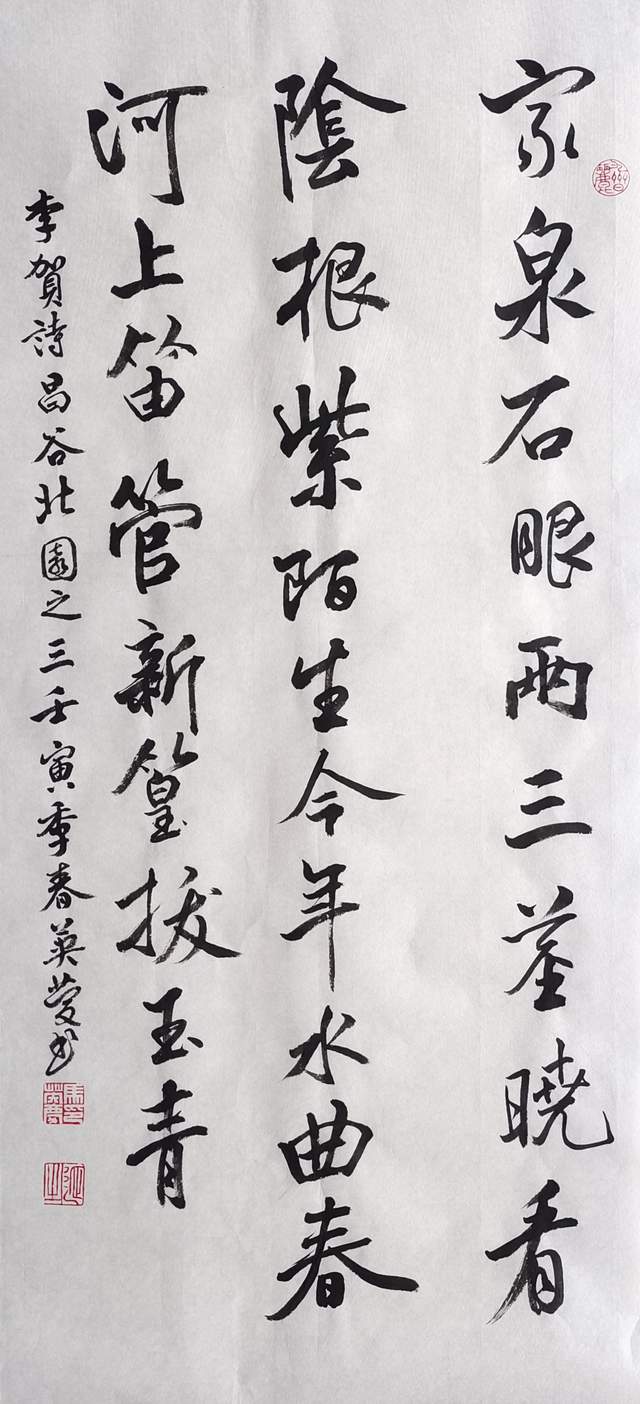 家泉石眼兩三莖曉看
陰根紫陌生今年水曲春
河上笛管新篁拔玉青
李賀詩昌谷北園之三壬寅季春英書